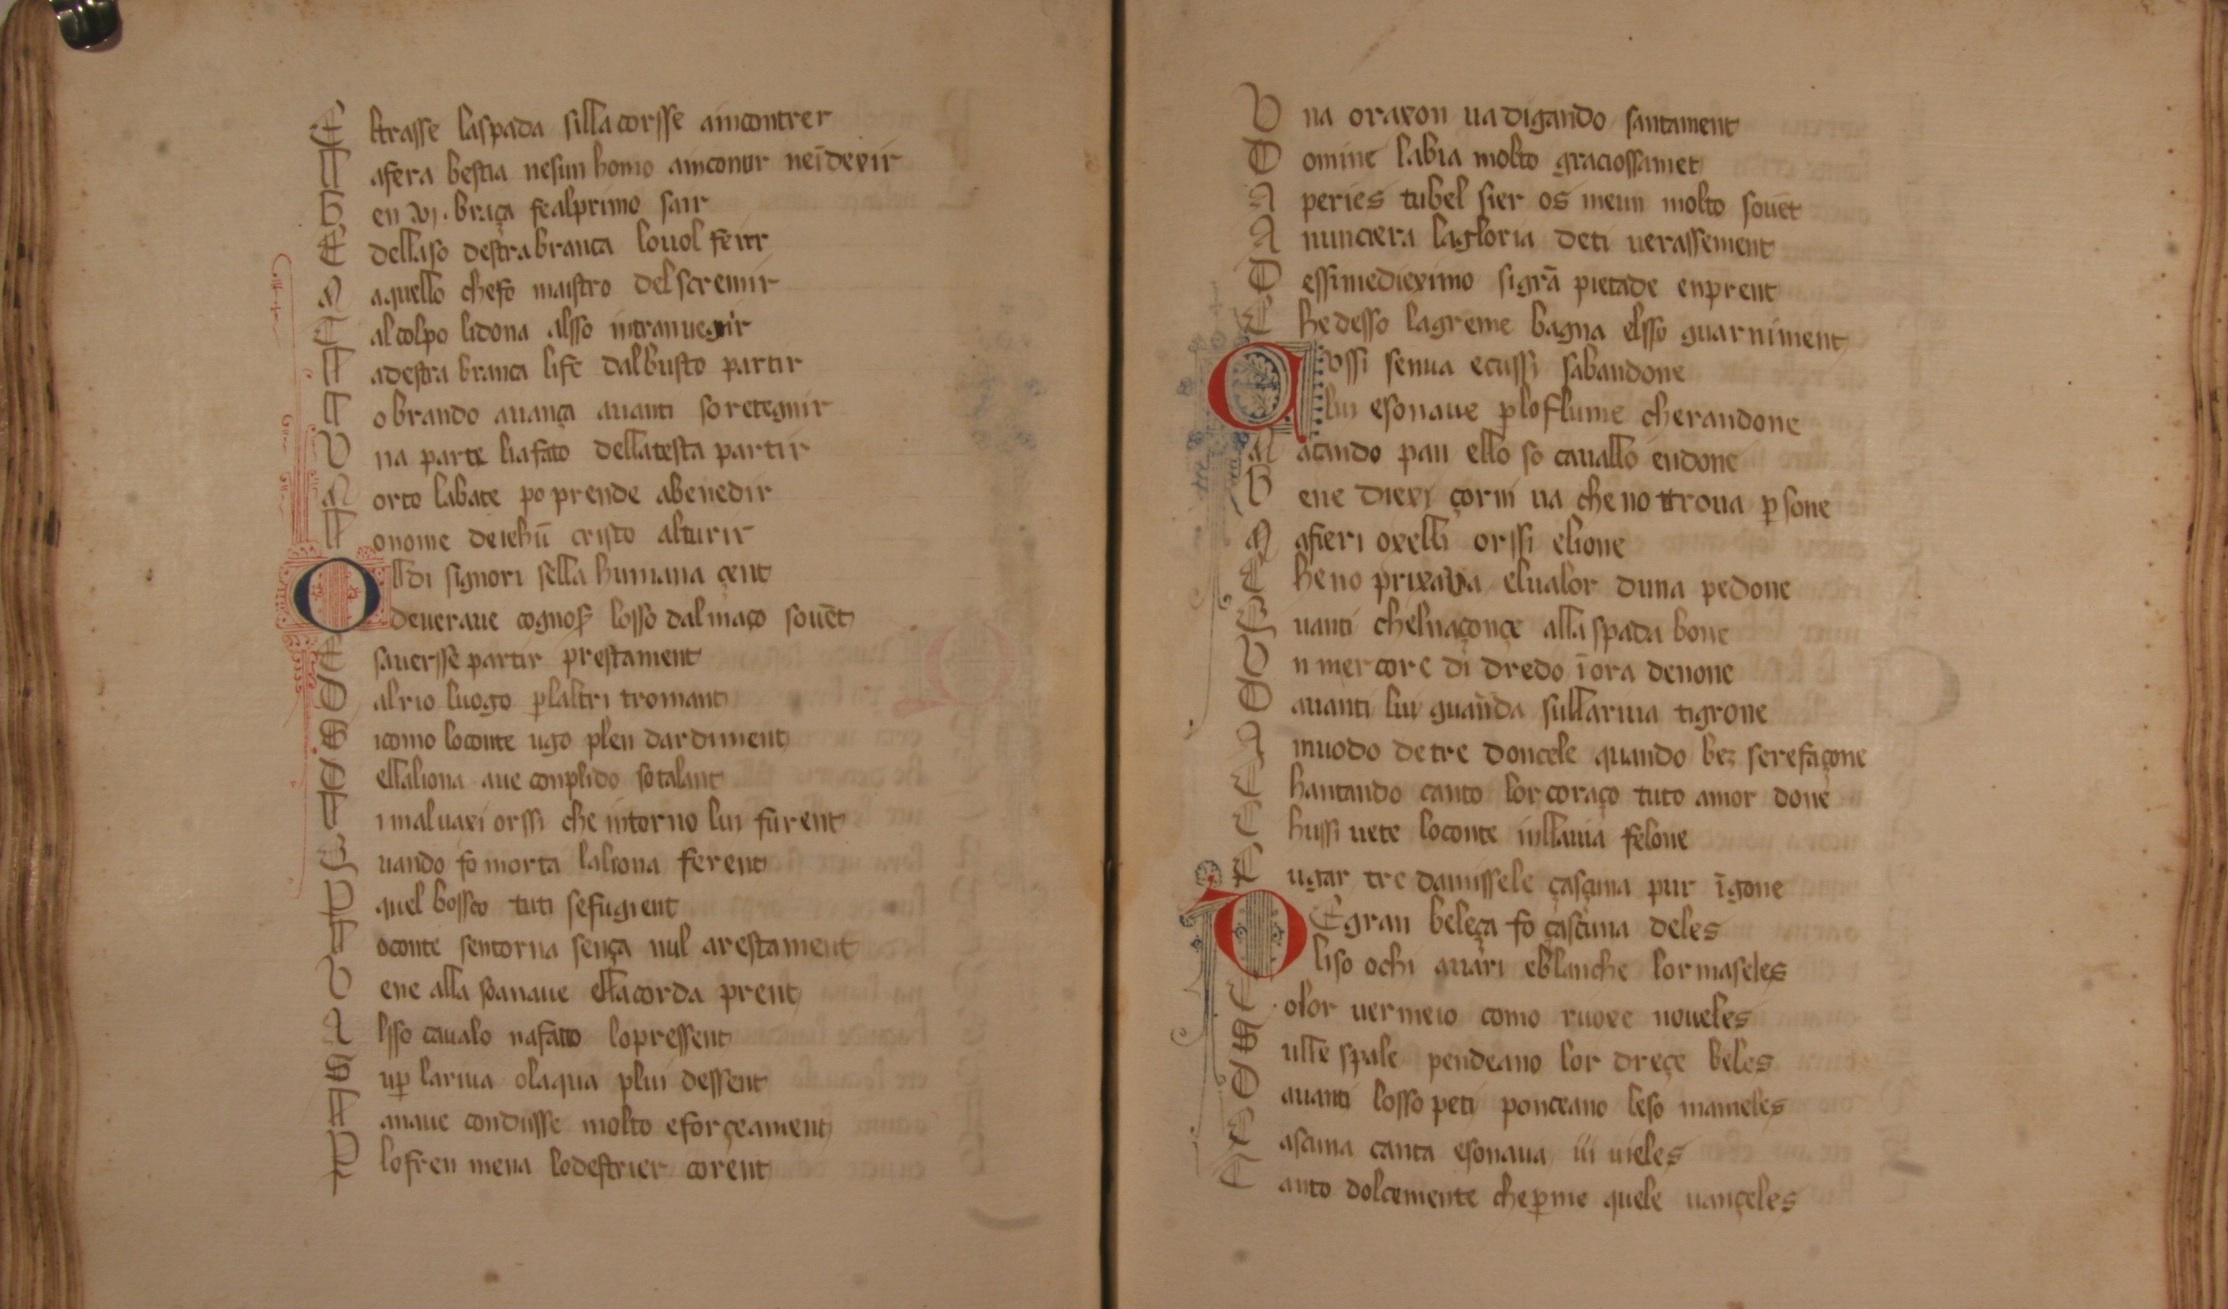 E ltrasse laspada silla corsse aincontrer
L afera bestia nesun homo ainconter neīdexir
B en vj. braça fealprimo sair
E dellaso destra branca lovol ferir
M aquello chefo maistro del scremir
T al colpo lidona alsso intranuegnir
L adestra branca life dalbusto partir
L o brando auança auanti so retegnir
U na parte liafato dellatesta partir
M orto labate po prende abenedir
L onome deiehū cristo alturir
O lldi signori sella humana çent
deueraue cognoss losso dalmaço souēt
E sauersse partir prestament
D alrio luogo p laltri tromant
S icomo loconte ugo plen dardiment
C ellaliona aue conplido sotalant
L i maluaxi orssi che intorno lui furent
Q uando fo morta laliona ferent
P quel bossco tuti sefugient
L oconte sentorna sença nul arestament
V ene alla soanaue ellacorda prent
A lsso caualo nafato lopressent
S up lariua olaqua plui dessent
L anaue condusse molto eforçeament
P lofren mena lodestrier corent
U na oraxon ua digando santament
D omine labia molto graciossamet
A peries tubel sier os meun molto souēt
A nunciera lagloria deti uerassement
D essimedieximo sigrā pietade enprent
C hedesso lagreme bagna elsso guarniment
Cossi senua ecussi sabandone
lui esonaue p loflume cherandone
M açando pan ello so cauallo endone
B ene diexi çorni ua che no trroua p sone
M afieri oxelli orssi elione
C he no prixaua elualor duna pedone
Q uanti cheluaçonçe alla spada bone
U n mercore di dredo īora denone
D auanti lui guarda sullariua tigrone
A muodo de tre doncele quando bez serefaçone
C hantando canto lor coraço tuto amor done
C hussi uete loconte inllauia felone
C ugar tre damissele çasçuna pur īgone
DE gran beleça fo çascuna deles
liso ochi auari eblanche lor maseles
C olor uermeio como ruoxe noueles
S ulle spale pendeano lor dreçe beles
D auanti losso peti ponceano leso mameles
C ascuna canta esonaua iii uieles
T anto dolcemente che p me quele uançeles